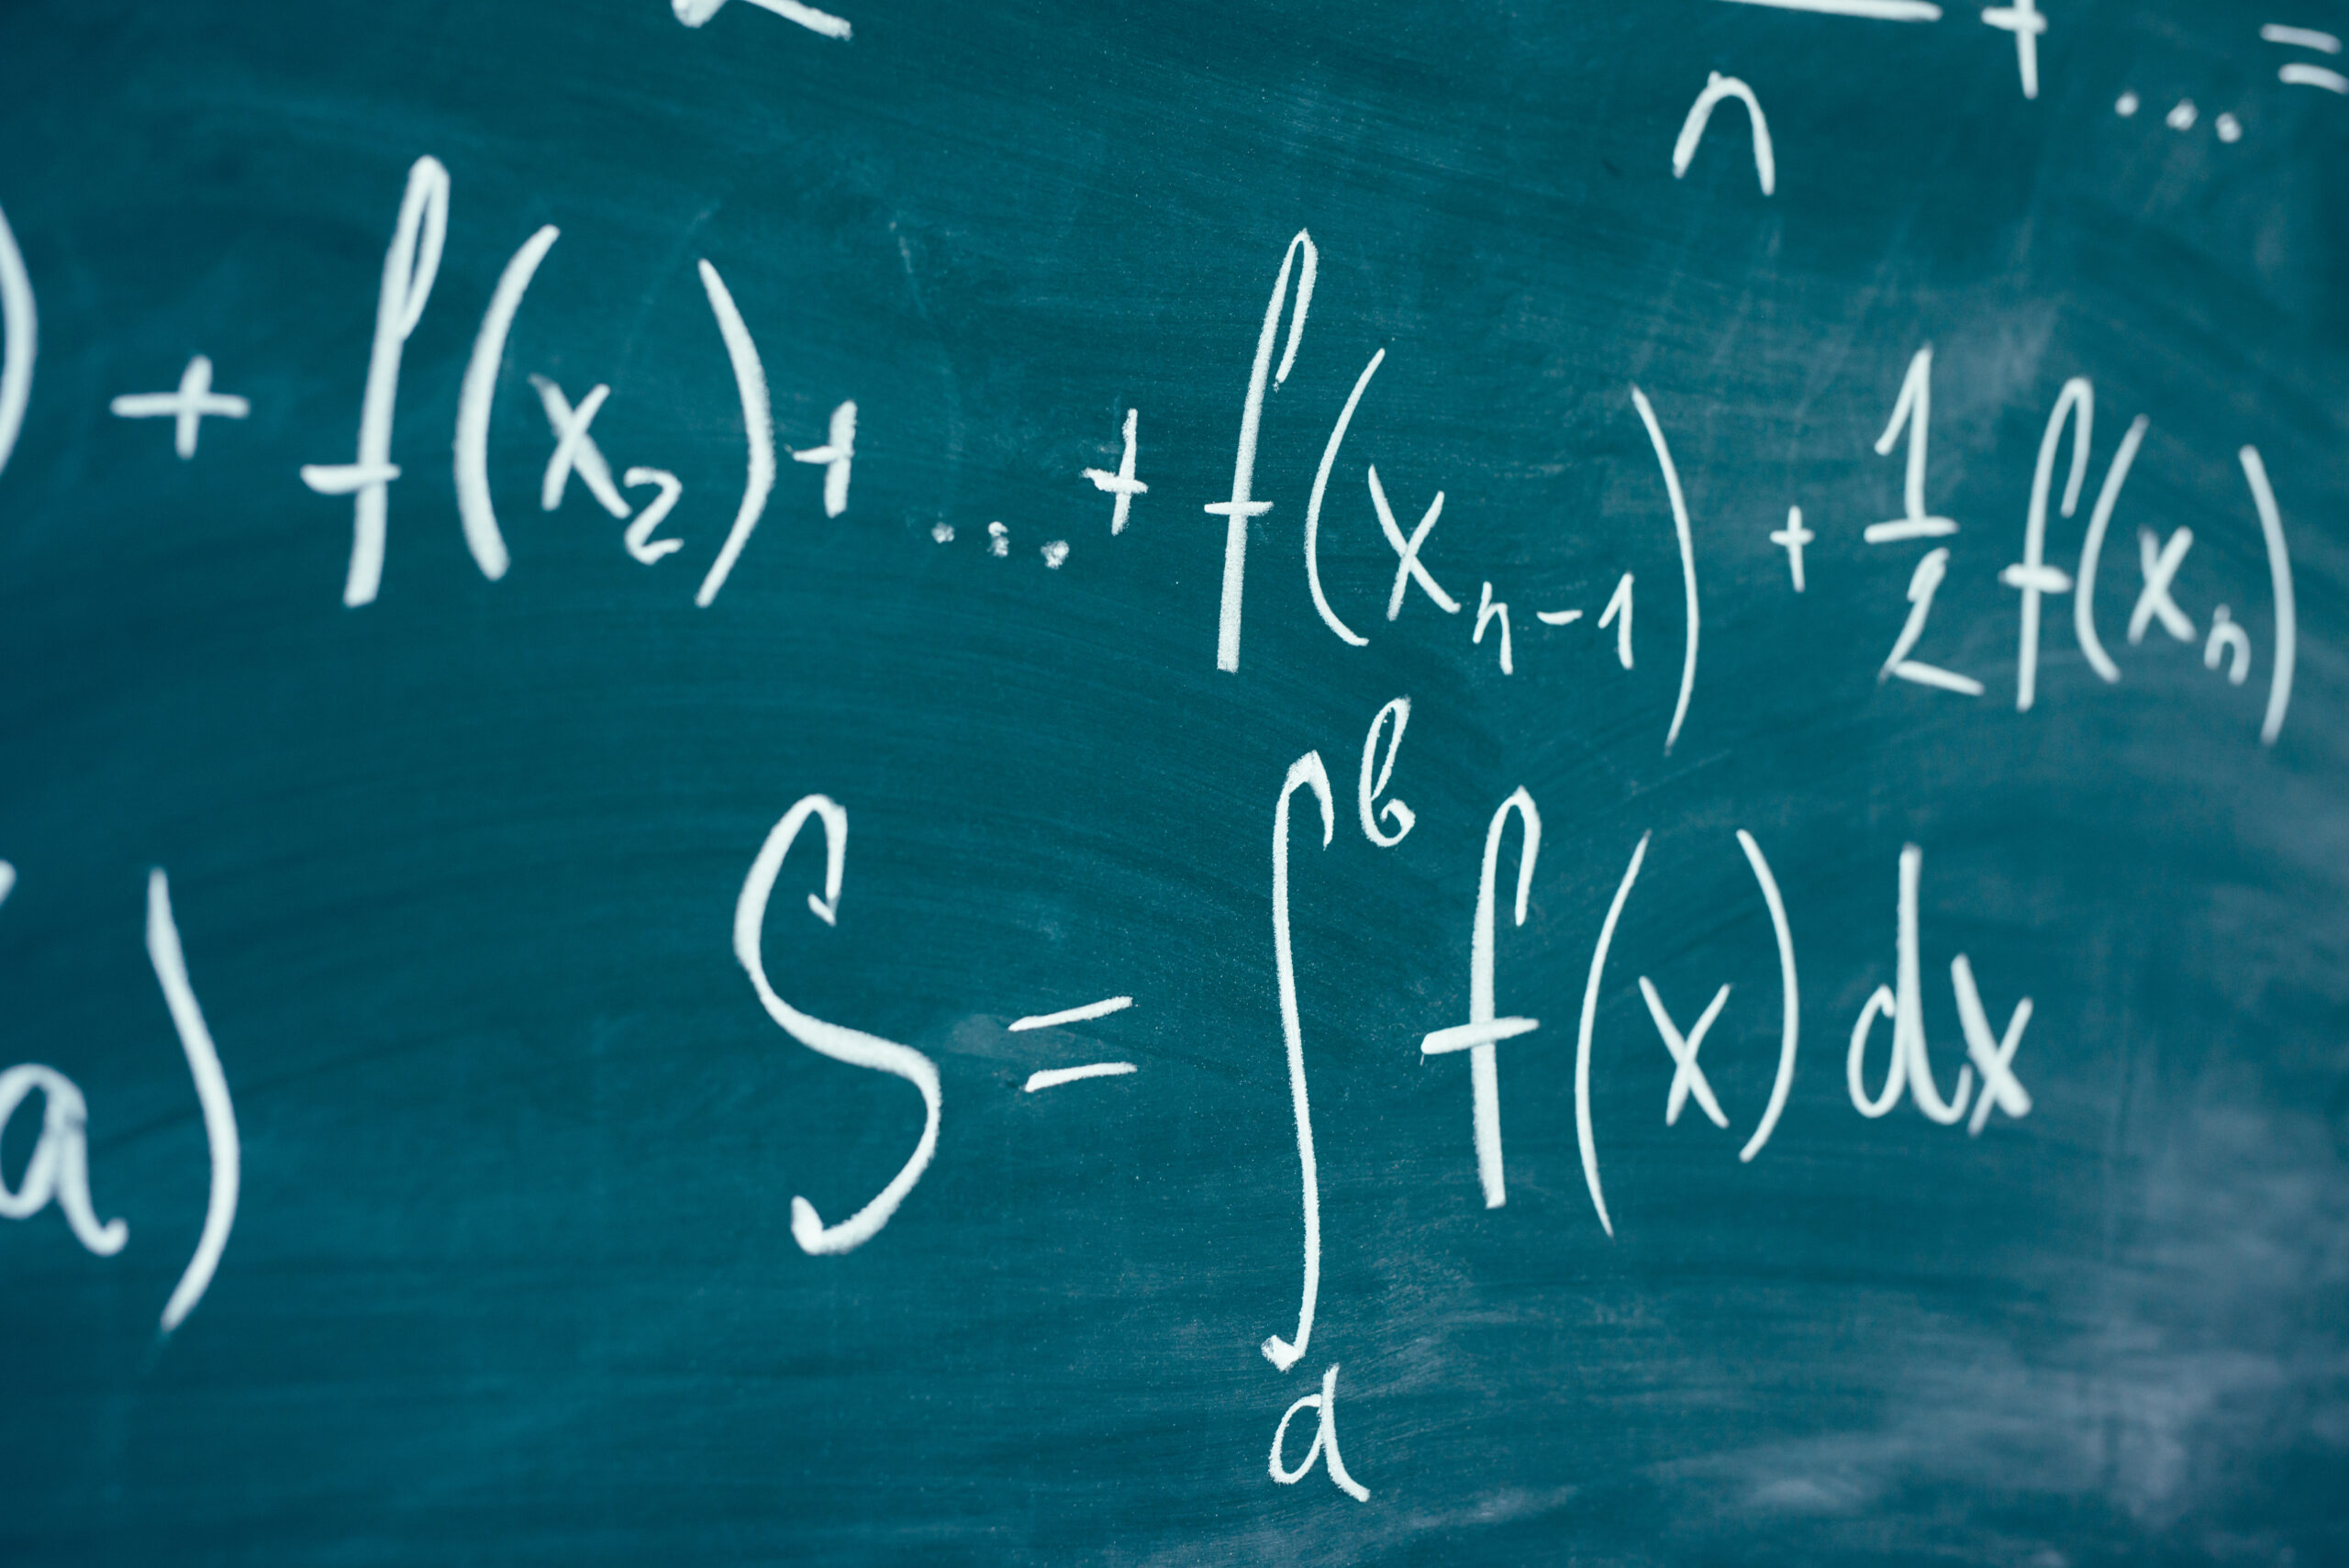 n + ... =
) + f(x₂) + ... + f(xₙ₋₁) + 1/2 f(xₙ)
a) S = ∫ₐᵇ f(x)dx